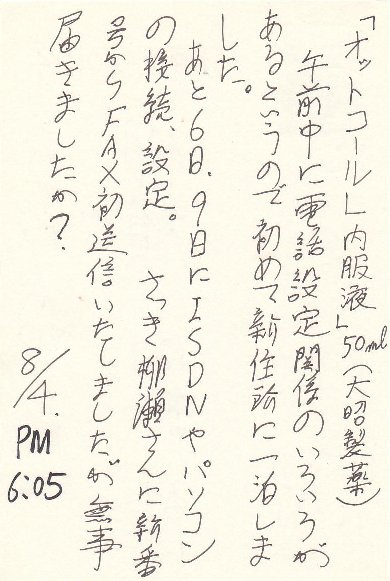 「オットコールL内服液」50ml(大昭製薬)
午前中に電話設定関係のいろいろが
あるというので初めて新住所に一泊しま
した。
あと6日、9日にISDNやパソコン
の接続、設定。さっき柳瀬さんに新番
号からFAX初送信いたしましたが無事
届きましたか?
8/4.
PM
6:05